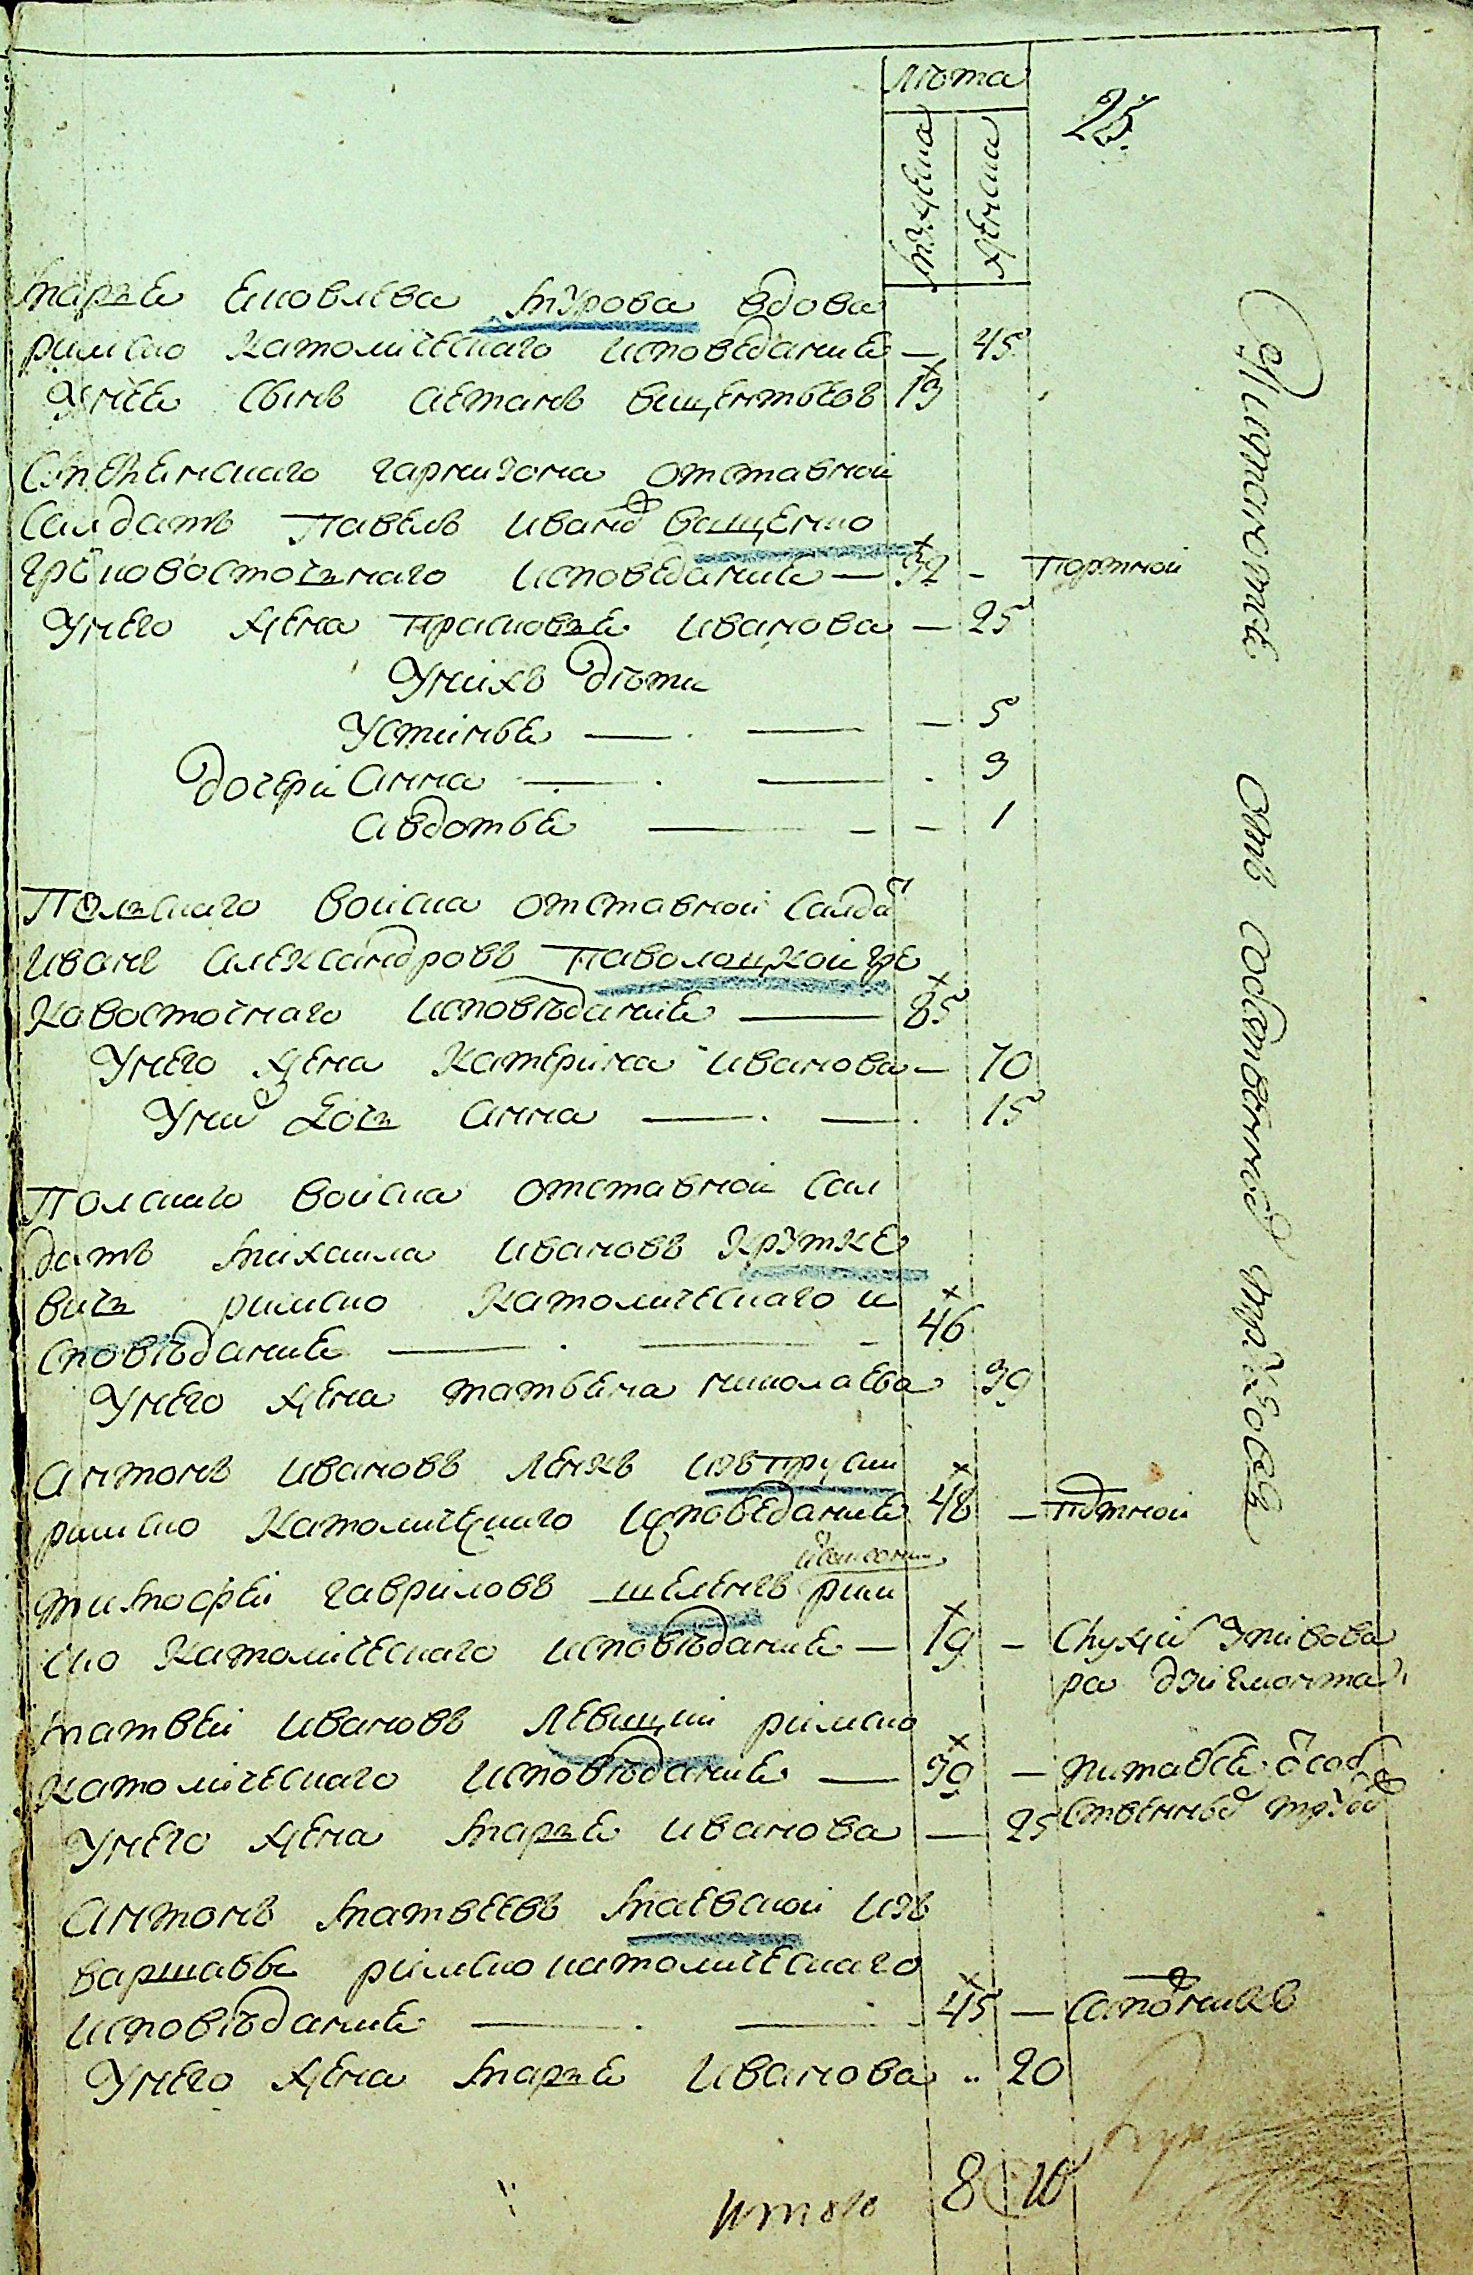 лѣта
25.
мужеска
женска
Марья Яковлева Мурова вдова
римско католическаго исповедание — 45
Унее сынъ Степанъ Вицентьевъ 19
гарнизона отставной
Салдатъ Павелъ Иванов Ващенко
грековосточнаго исповедание — 32 — портной
Унего жена Прасковья Иванова — 25
Унихъ дѣти
Устинья — — — 5
дочери Анна — — . 3
Авдотья — — — 1
Полскаго войска отставной салда
Иванъ Александровъ Паволоцкой гре
ковосточнаго исповѣдание — 85
Унего жена Катерина Иванова — 70
Уних дочь Анна — — . 15
Полскаго войска отставной сал
датъ Михаила Ивановъ Крутке
вичь римско католическаго и
споведание — — — 46
Унего жена Татьяна Николаева 39
Антонъ Ивановъ Ленкъ изъ прусии
римско католическаго исповедание 48 — портной
Тимофей Гавриловъ Шеленгъ рим
ско католическаго исповѣдание — 19 — Служит у пивова
ра
Матвей Ивановъ Левицкий римско
католическаго исповѣдание — 39 — питается соб
Унего жена Марья Иванова — 25 ственным трудом
Антонъ Матвеевъ Маевской изъ
варшавы римско католическаго
исповѣдание — — 45 — сапожникъ
Унего жена Марья Иванова .. 20
Итого 8 10
Пропитание
отъ собственных трудовъ